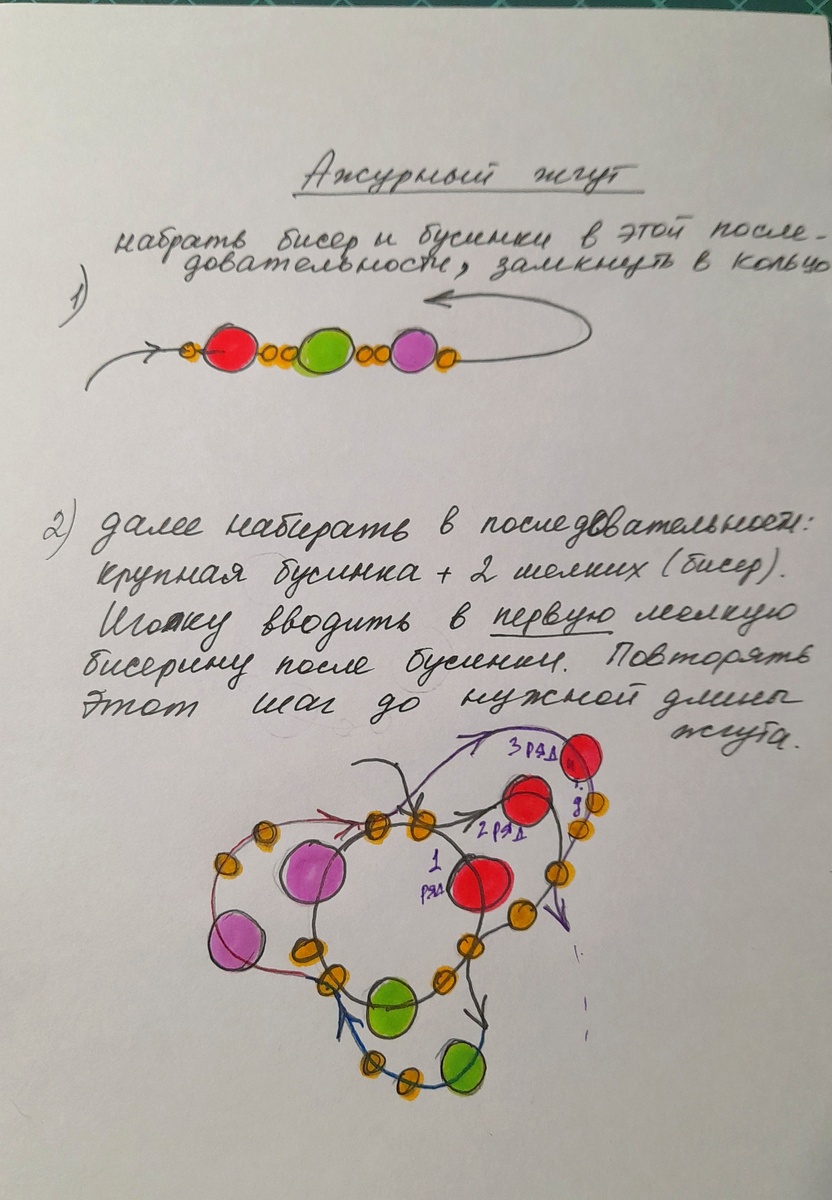 Ажурный жгут
набрать бисер и бусинки в этой после-
довательности, замкнуть в кольцо
1)
2) далее набирать в последовательности:
крупная бусинка + 2 мелких (бисер).
Иголку вводить в первую мелкую
бисерину после бусинки. Повторять
этот шаг до нужной длины
жгута.
3 ряд
и т. д
2 ряд
1
ряд